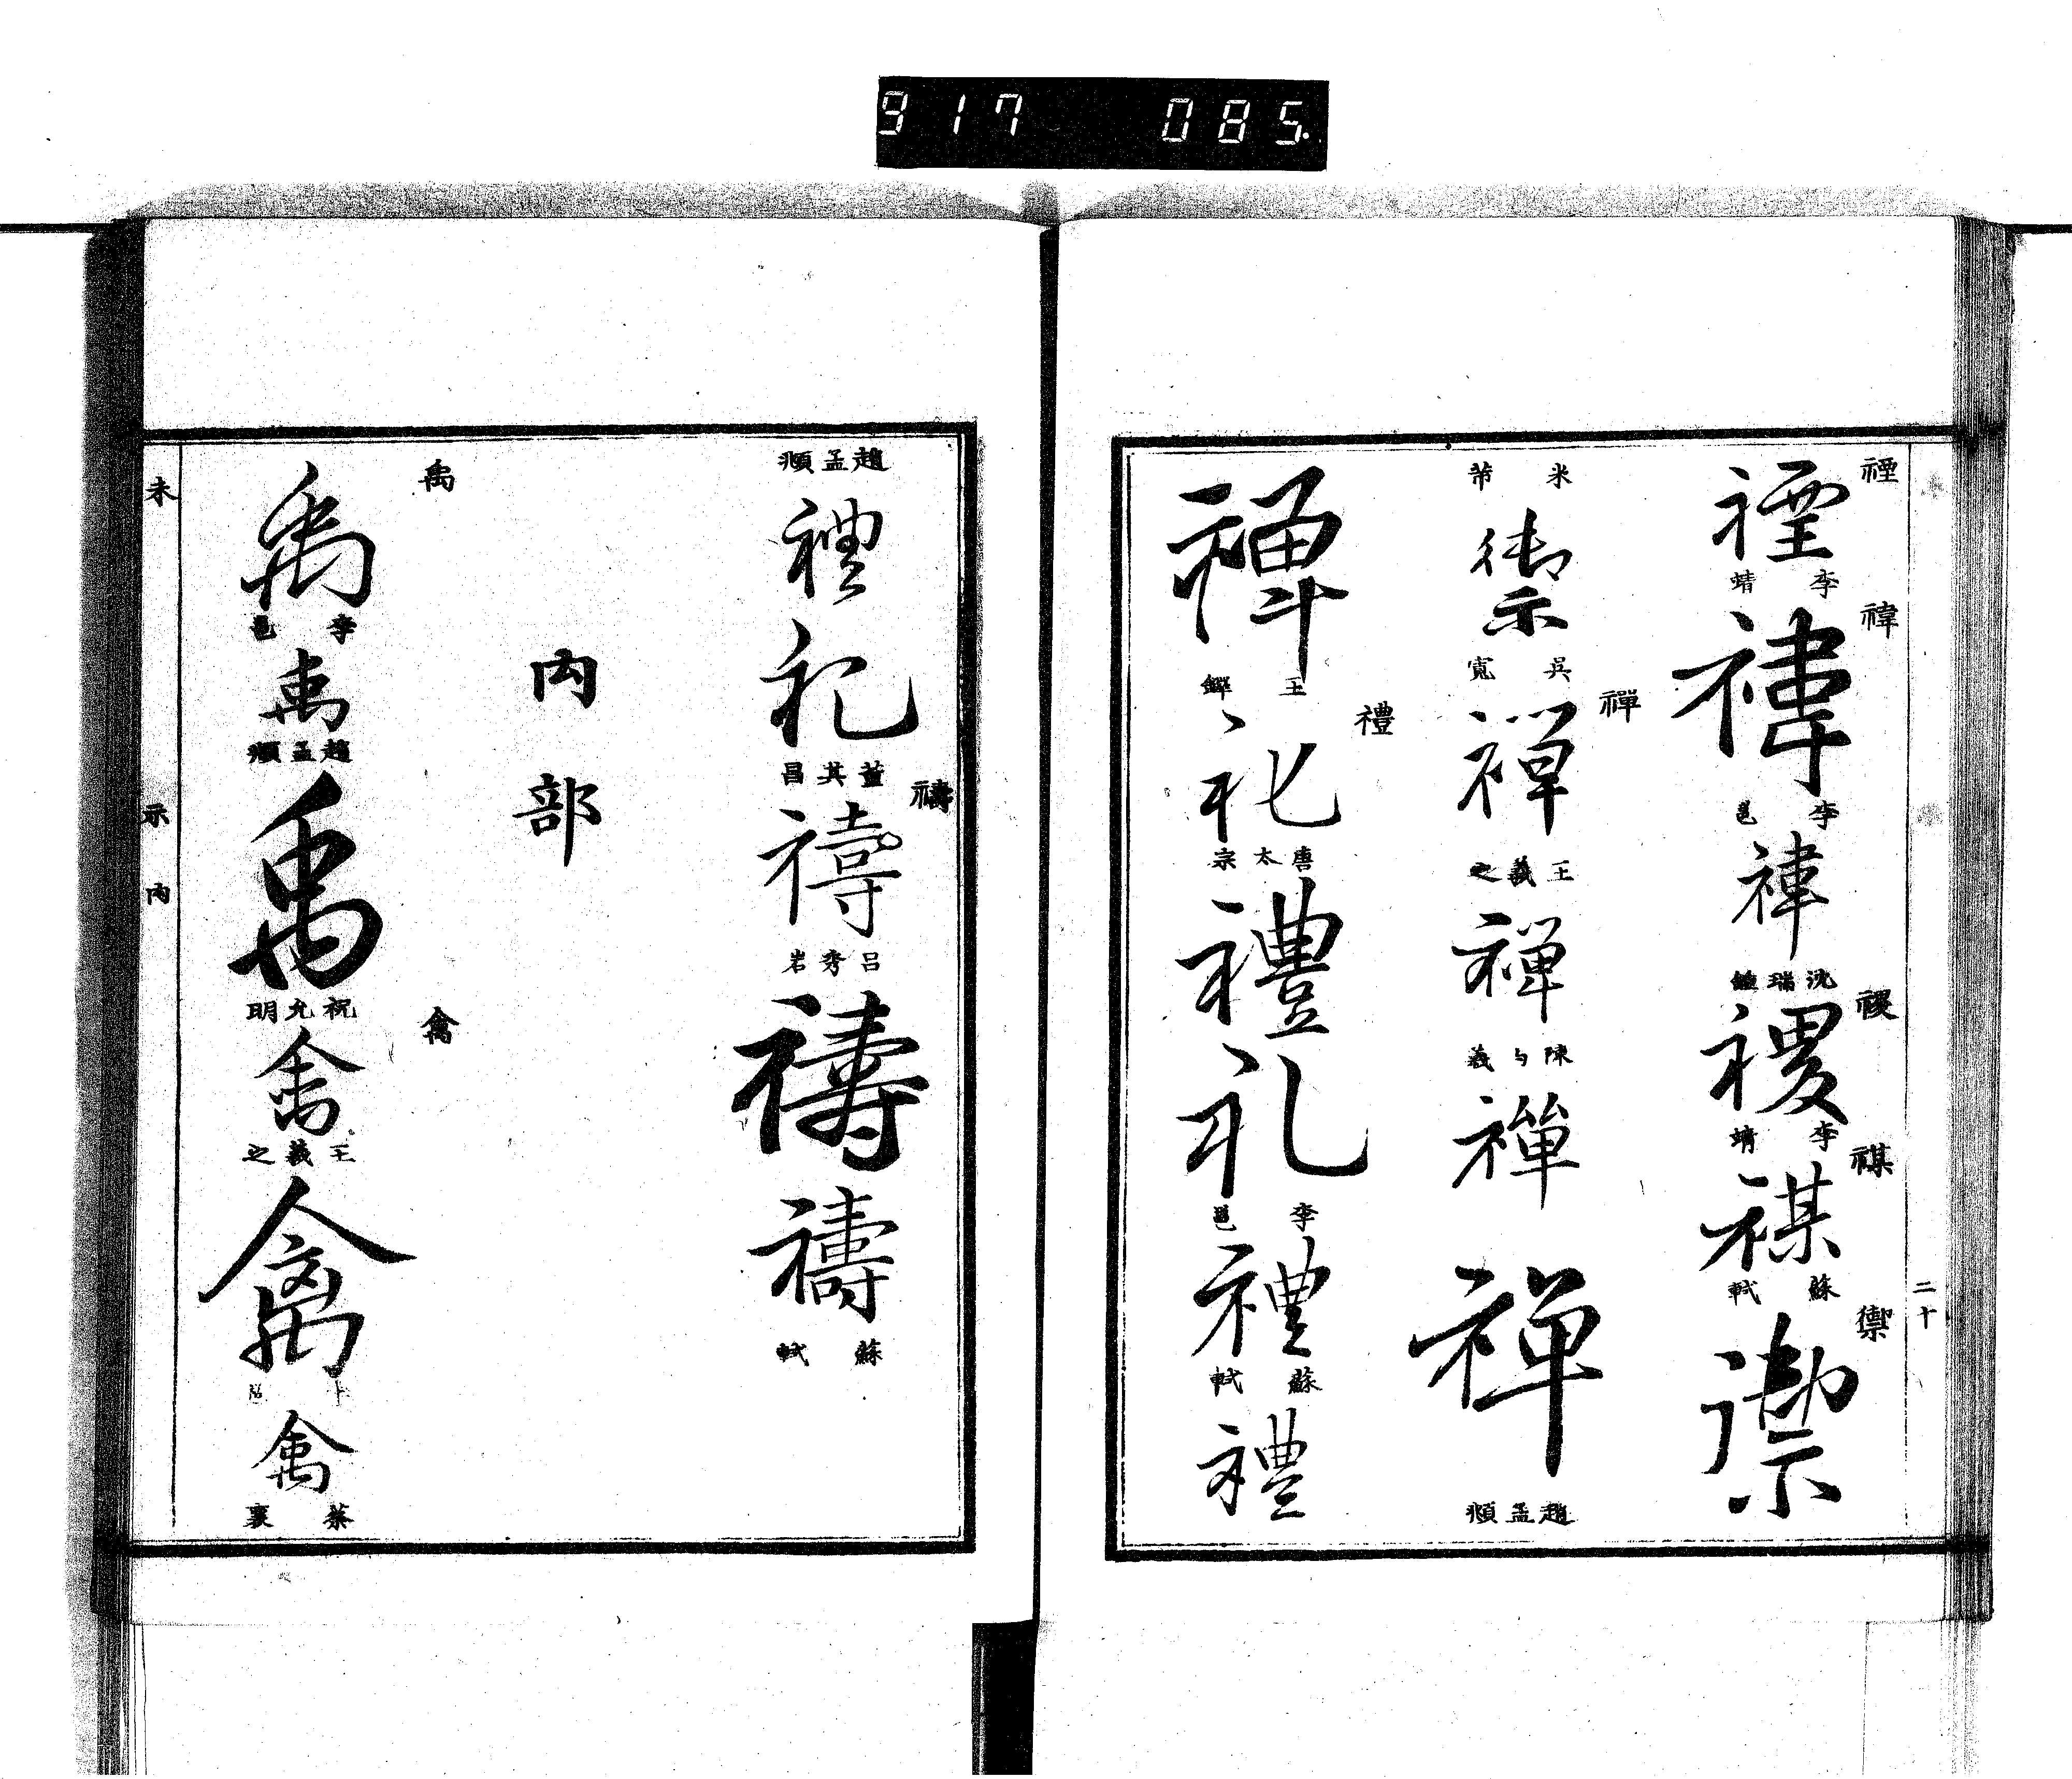 917 085
二十
禋
禋
李 靖
禕
禕
李 邕
禕
沈瑞鐘
禝
禝
李 靖
禖
禖
蘇 軾
禦
禦
米 芾
禦
吳 寬
禪
禪
王羲之
禪
陳与義
禪
禪
趙孟頫
禪
王 鐸
禮
礼
唐太宗
禮
礼
李 邕
禮
蘇 軾
禮
趙孟頫
禮
礼
董其昌
禱
禱
呂秀岩
禱
禱
蘇 軾
内部
禹
禹
李 邕
禹
趙孟頫
禹
祝允明
禽
禽
王羲之
禽
禽
蔡 襄
未 示 内